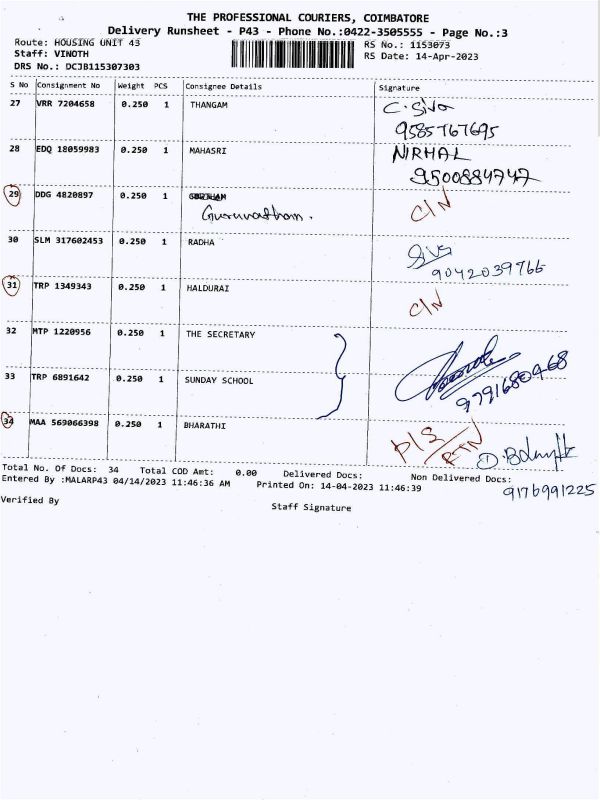 THE PROFESSIONAL COURIERS, COIMBATORE
Delivery Runsheet - P43 - Phone No.:0422-3505555 - Page No.:3
Route: HOUSING UNIT 43
RS No.: 1153073
Staff: VINOTH
RS Date: 14-Apr-2023
DRS No.: DCJB115307303
S No Consignment No Weight PCS Consignee Details Signature
27 VRR 7204658 0.250 1 THANGAM C. Siva
9585767695
28 EDQ 18059983 0.250 1 MAHASRI NIRMAL
9500884747
29 DDG 4820897 0.250 1 C/N
Guruvatham.
30 SLM 317602453 0.250 1 RADHA Siva
9042039766
31 TRP 1349343 0.250 1 HALDURAI C/N
32 MTP 1220956 0.250 1 THE SECRETARY
33 TRP 6891642 0.250 1 SUNDAY SCHOOL 9791680468
34 MAA 569066398 0.250 1 BHARATHI P/S
RTN
Total No. Of Docs: 34 Total COD Amt: 0.00 Delivered Docs: Non Delivered Docs:
Entered By :MALARP43 04/14/2023 11:46:36 AM Printed On: 14-04-2023 11:46:39
9176991225
Verified By
Staff Signature